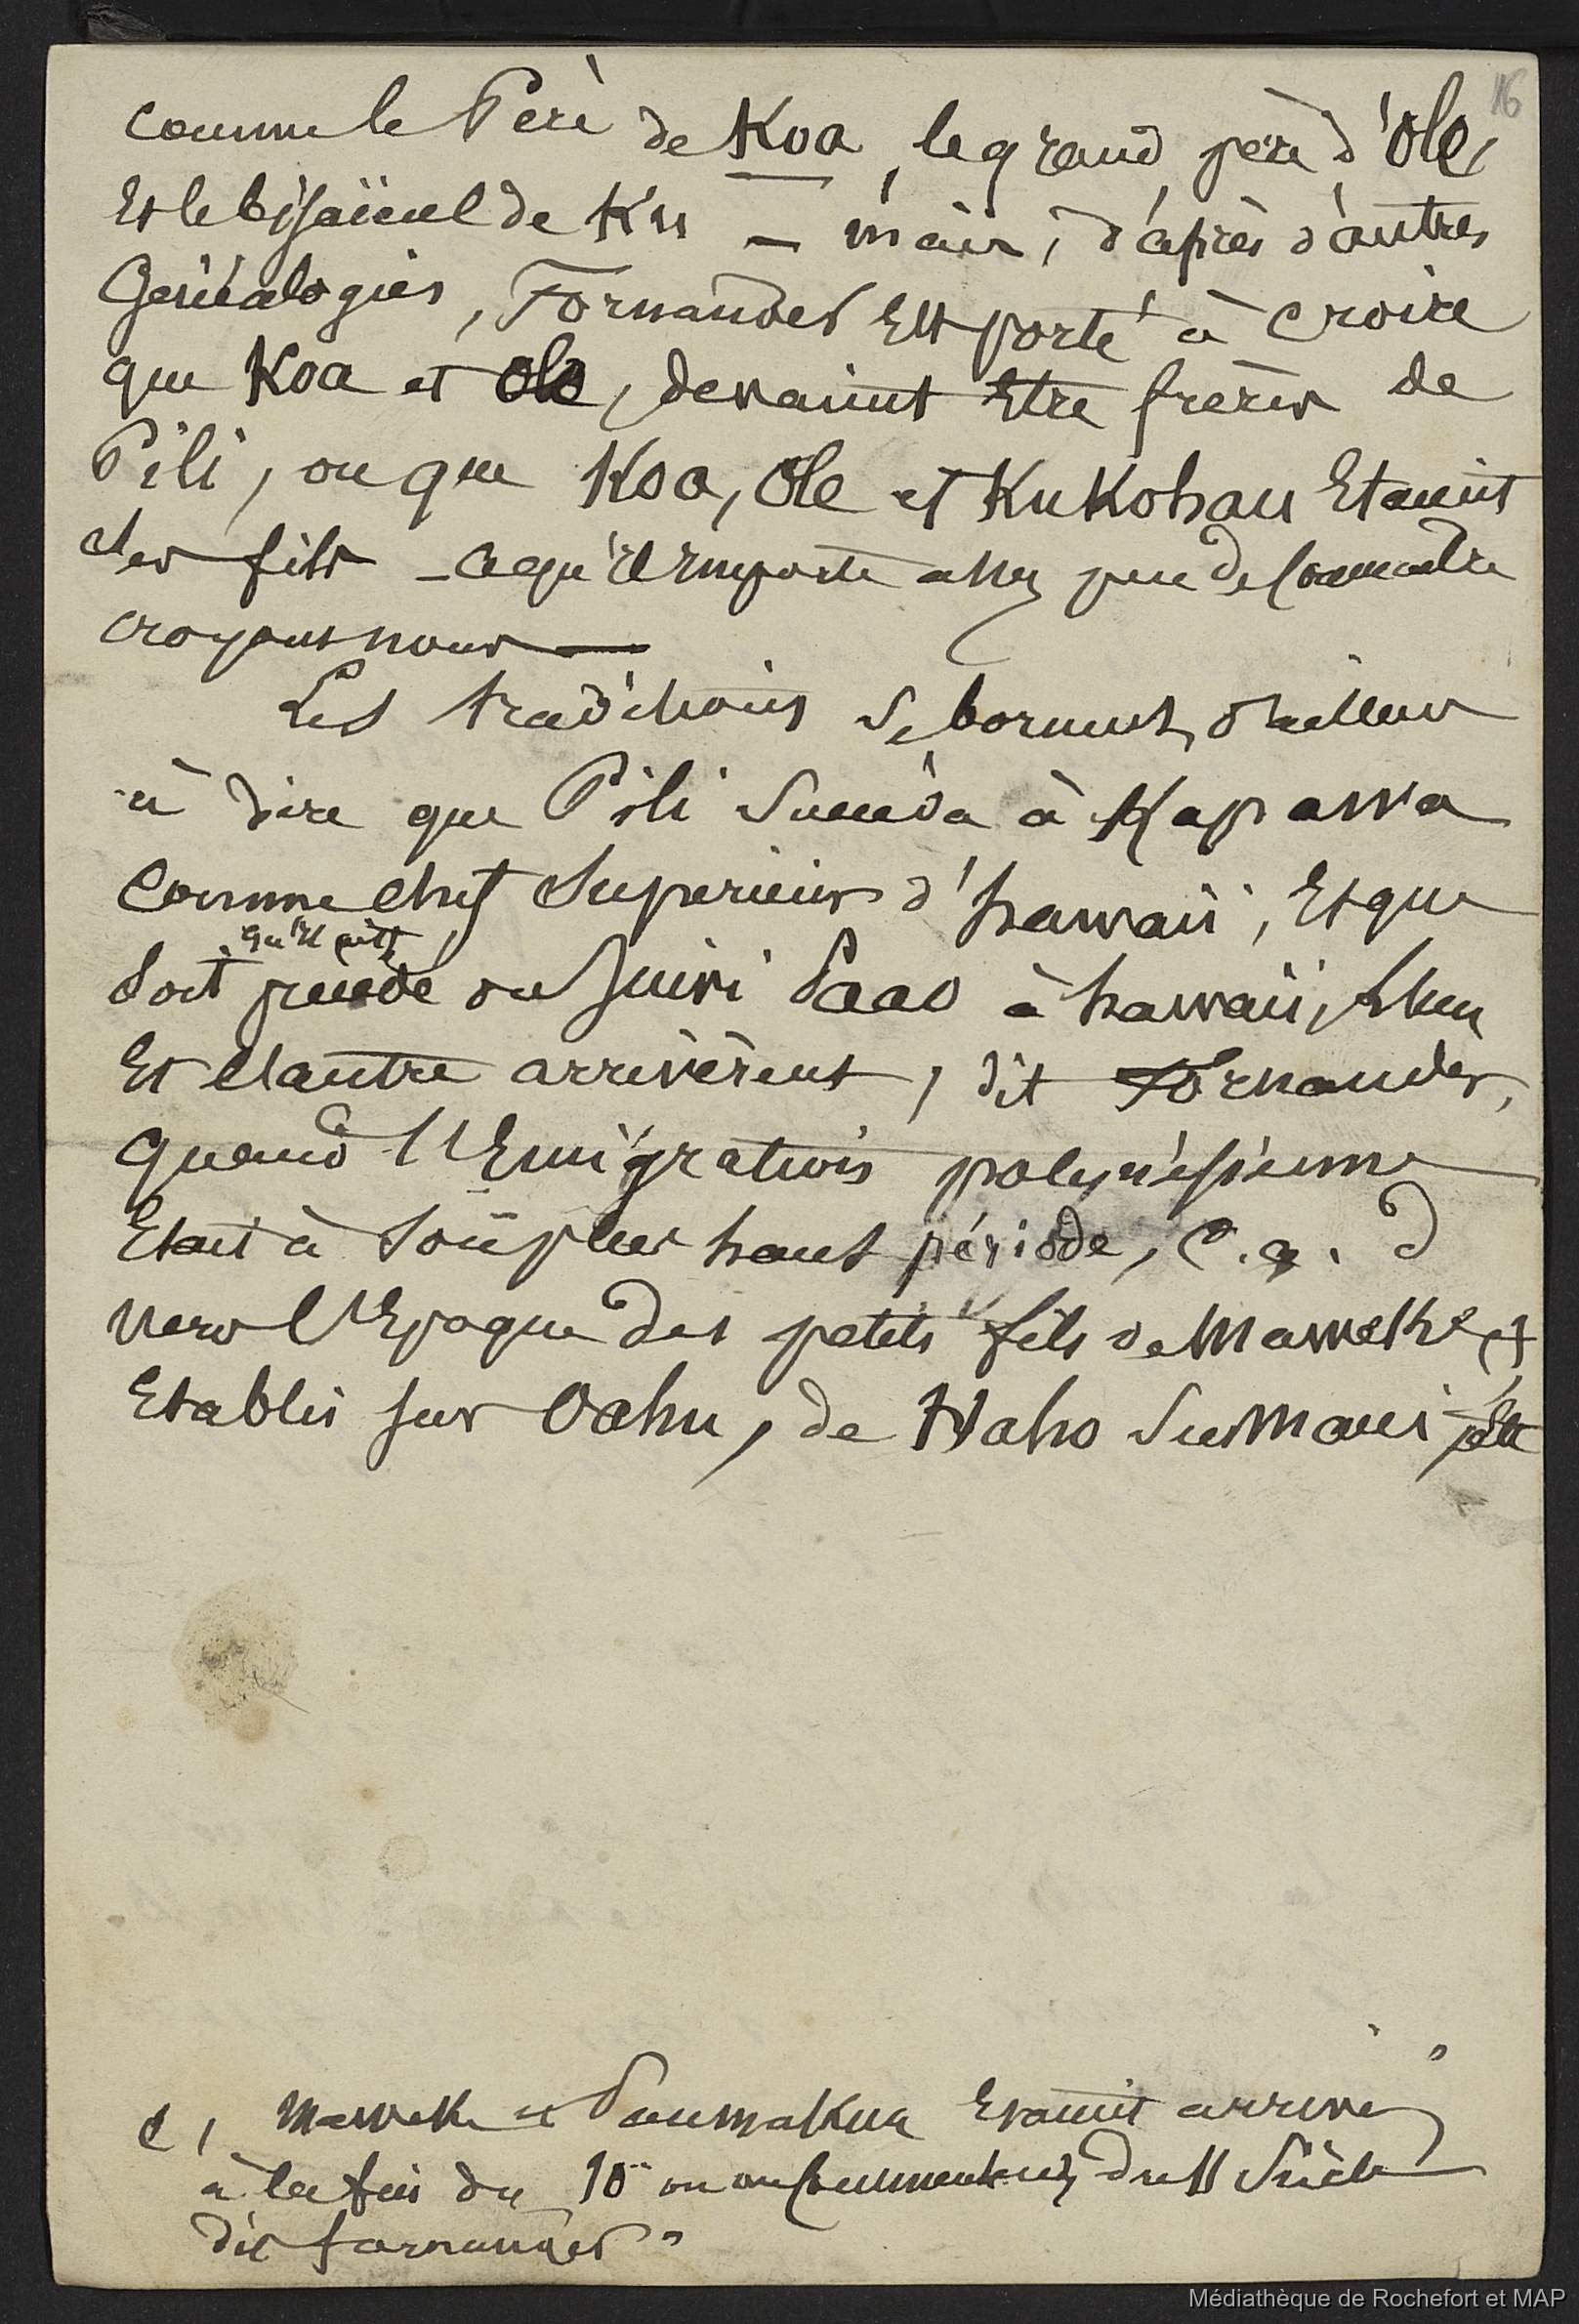 16
comme le Père de Koa, le grand père d'Ole,
Et le bisaïeul de Ku — mais, d'après d'autres
Généalogies, Fornander Est porté à croire
que Koa et Ole, devaient Etre frères de
Pili, ou que Koa, Ole et Kukohau Etaient
ses fils — Ce qu'il importe assez peu de connaitre
croyons nous —
Les traditions se bornent, d'ailleurs
à dire que Pili succéda à Kapawa
Comme chef Supérieur d'hawaii, Et que
qu'il ait
soit précédé ou suivi Paao à hawaii, l'un
Et l'autre arrivèrent, dit Fornander,
quand l'Emigration polynésienne
Etait à son plus haut période, C. a. d
vers l'Epoque des petits fils de Maweke (1
Etablis sur Oahu, de Haho sur Maui
(1 Maweke et Paumakua Etaient arrivés
à la fin du 10e ou au commencent du 11 Siècle
dit fornander"
Médiathèque de Rochefort et MAP